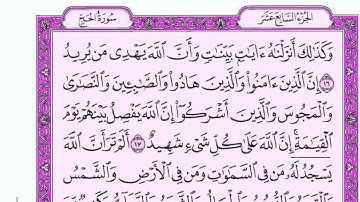 الجزء السابع عشر سورة الحج
وَكَذَٰلِكَ أَنزَلْنَٰهُ ءَايَٰتٍۭ بَيِّنَٰتٍ وَأَنَّ ٱللَّهَ يَهْدِى مَن يُرِيدُ
۝١٦ إِنَّ ٱلَّذِينَ ءَامَنُوا۟ وَٱلَّذِينَ هَادُوا۟ وَٱلصَّٰبِـِٔينَ وَٱلنَّصَٰرَىٰ
وَٱلْمَجُوسَ وَٱلَّذِينَ أَشْرَكُوٓا۟ إِنَّ ٱللَّهَ يَفْصِلُ بَيْنَهُمْ يَوْمَ
ٱلْقِيَٰمَةِ ۚ إِنَّ ٱللَّهَ عَلَىٰ كُلِّ شَىْءٍ شَهِيدٌ ۝١٧ أَلَمْ تَرَ أَنَّ ٱللَّهَ
يَسْجُدُ لَهُۥ مَن فِى ٱلسَّمَٰوَٰتِ وَمَن فِى ٱلْأَرْضِ وَٱلشَّمْسُ